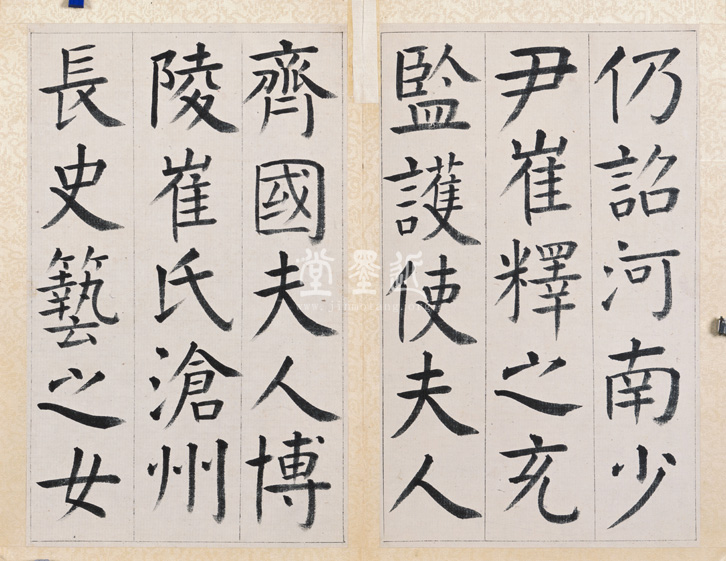 仍詔河南少
尹崔釋之充
監護使夫人
齊國夫人博
陵崔氏滄州
長史藝之女